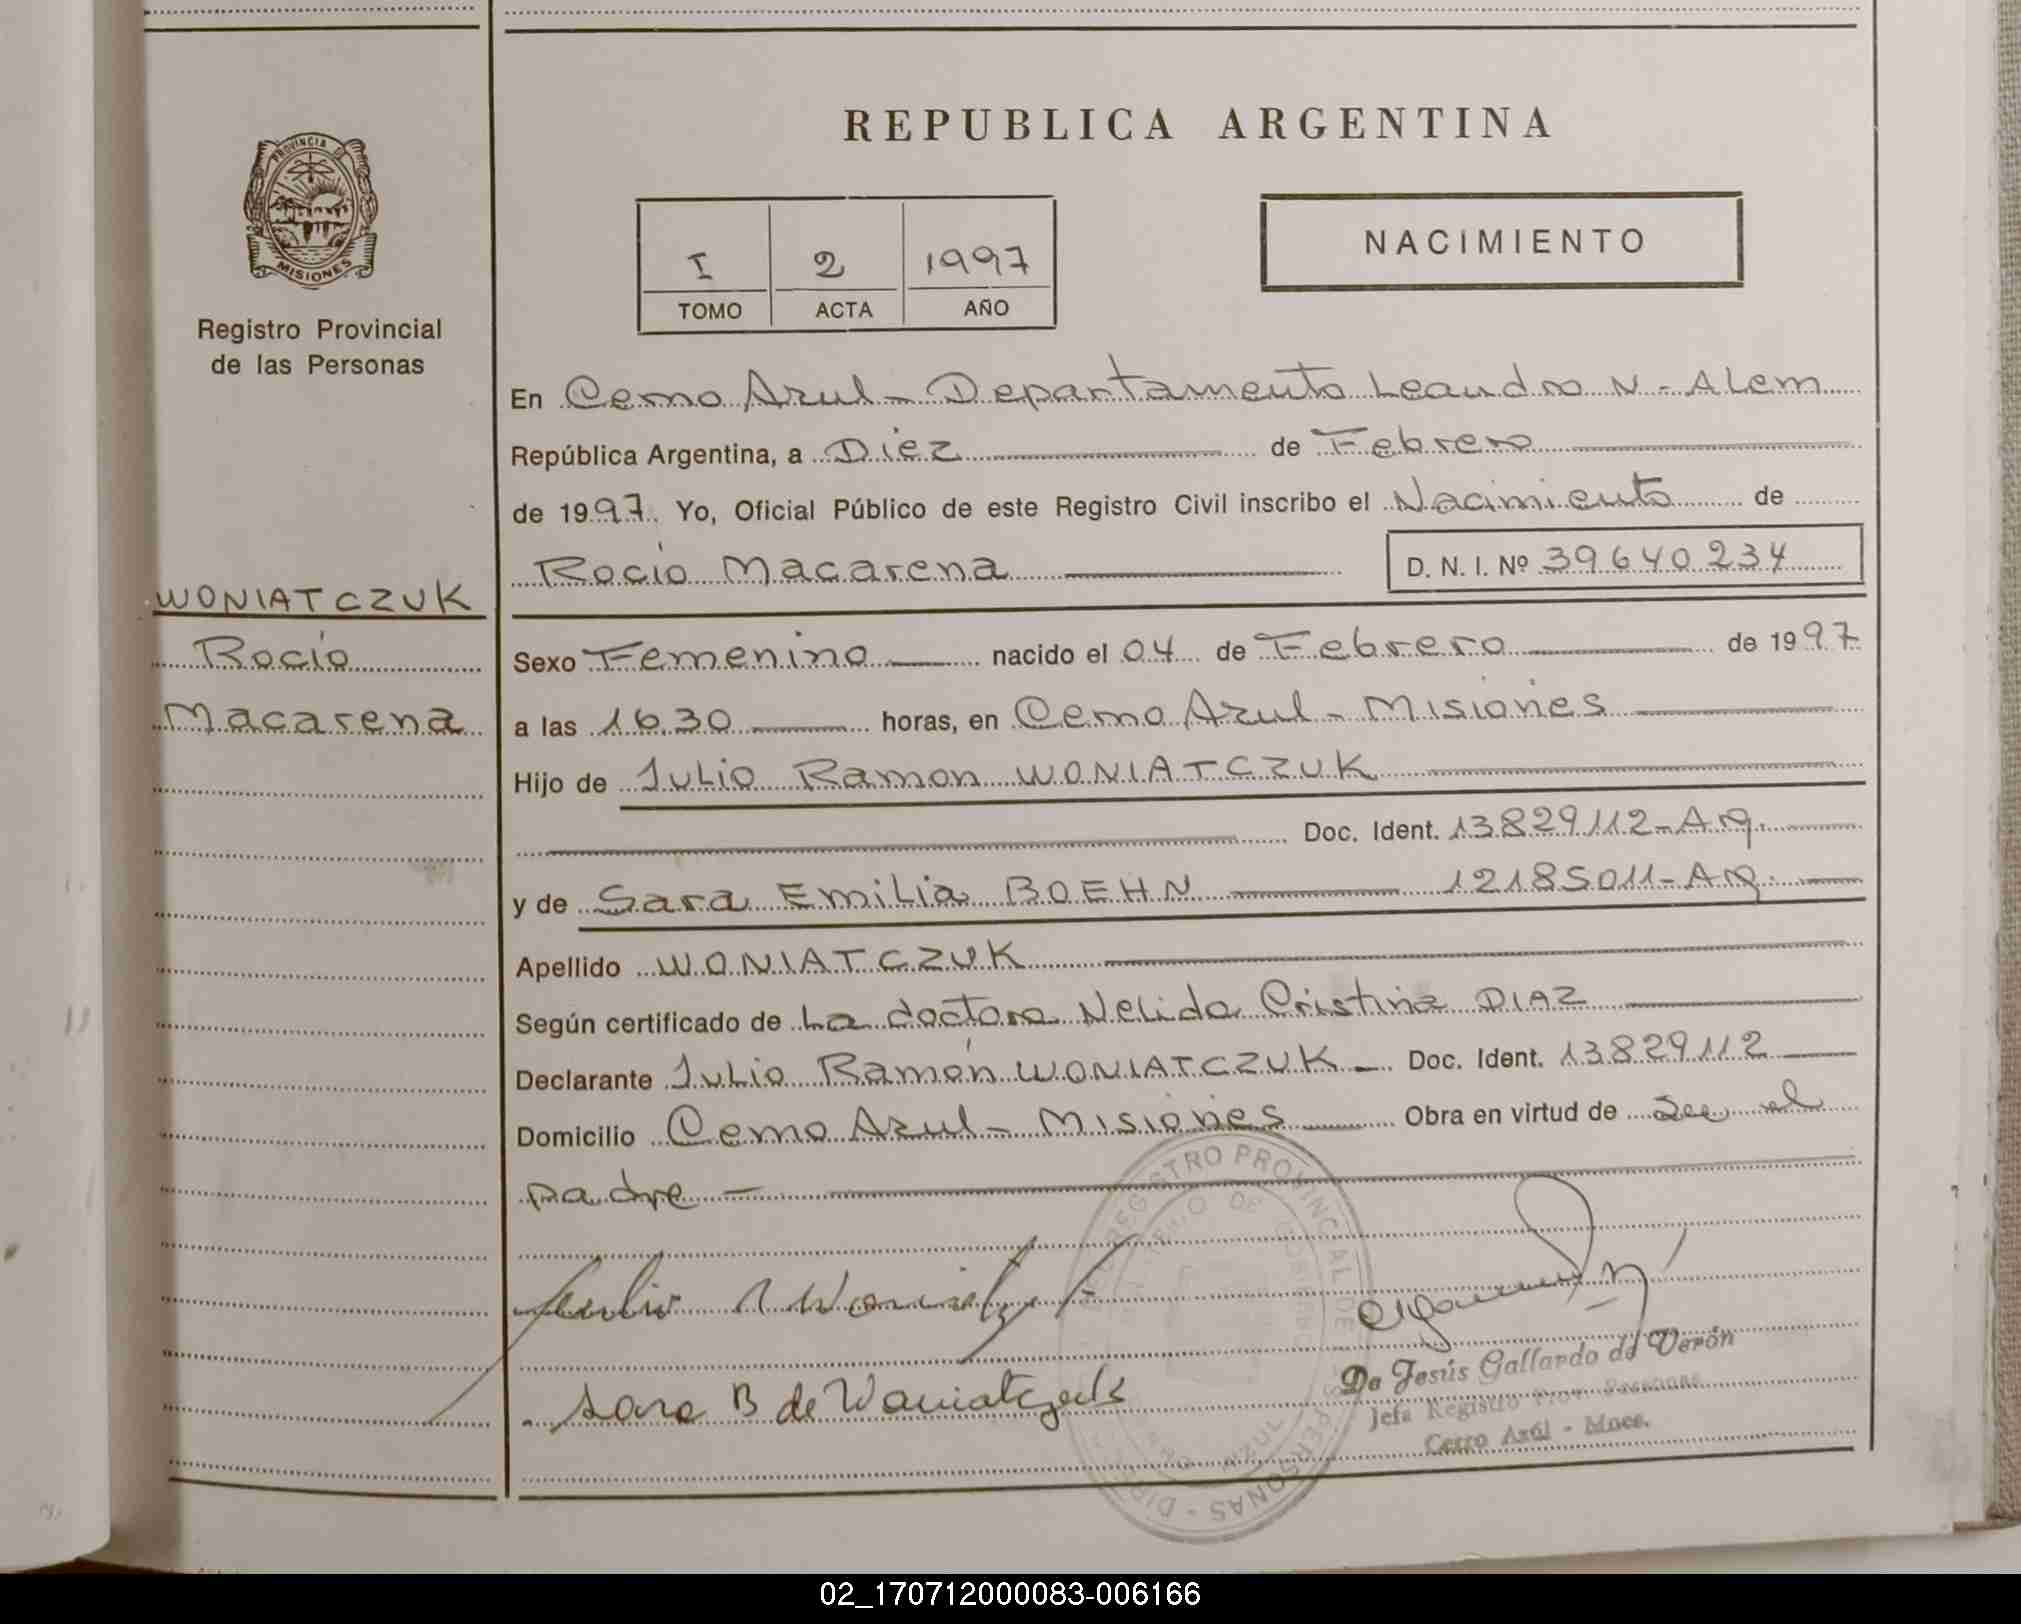 REPUBLICA ARGENTINA
PROVINCIA DE
MISIONES
Registro Provincial
de las Personas
I 2 1997
TOMO ACTA AÑO
NACIMIENTO
En Cerro Azul - Departamento Leandro N - ALem
República Argentina, a Diez de Febrero
de 1997. Yo, Oficial Público de este Registro Civil inscribo el Nacimiento de
Rocío Macarena D. N. I. Nº 39640234
WONIATCZUK
Rocío
Macarena
Sexo Femenino nacido el 04 de Febrero de 1997
a las 16.30 horas, en Cerro Azul - Misiones
Hijo de Julio Ramon WONIATCZUK
Doc. Ident. 13829112-Arg.
y de Sara EmiLia BOEHN 12185011-Arg.
Apellido WONIATCZUK
Según certificado de La doctora Nelida Cristina DIAZ
Declarante Julio Ramón WONIATCZUK - Doc. Ident. 13829112
Domicilio Cerro Azul - Misiones Obra en virtud de Ser el
padre -
Julio R
Sara B de Woniatczuk
De Jesús Gallardo de Verón
Jefa Registro Prov. Personas
Cerro Azúl - Mnes.
REGISTRO PROVINCIAL DE PERSONAS
02_170712000083-006166